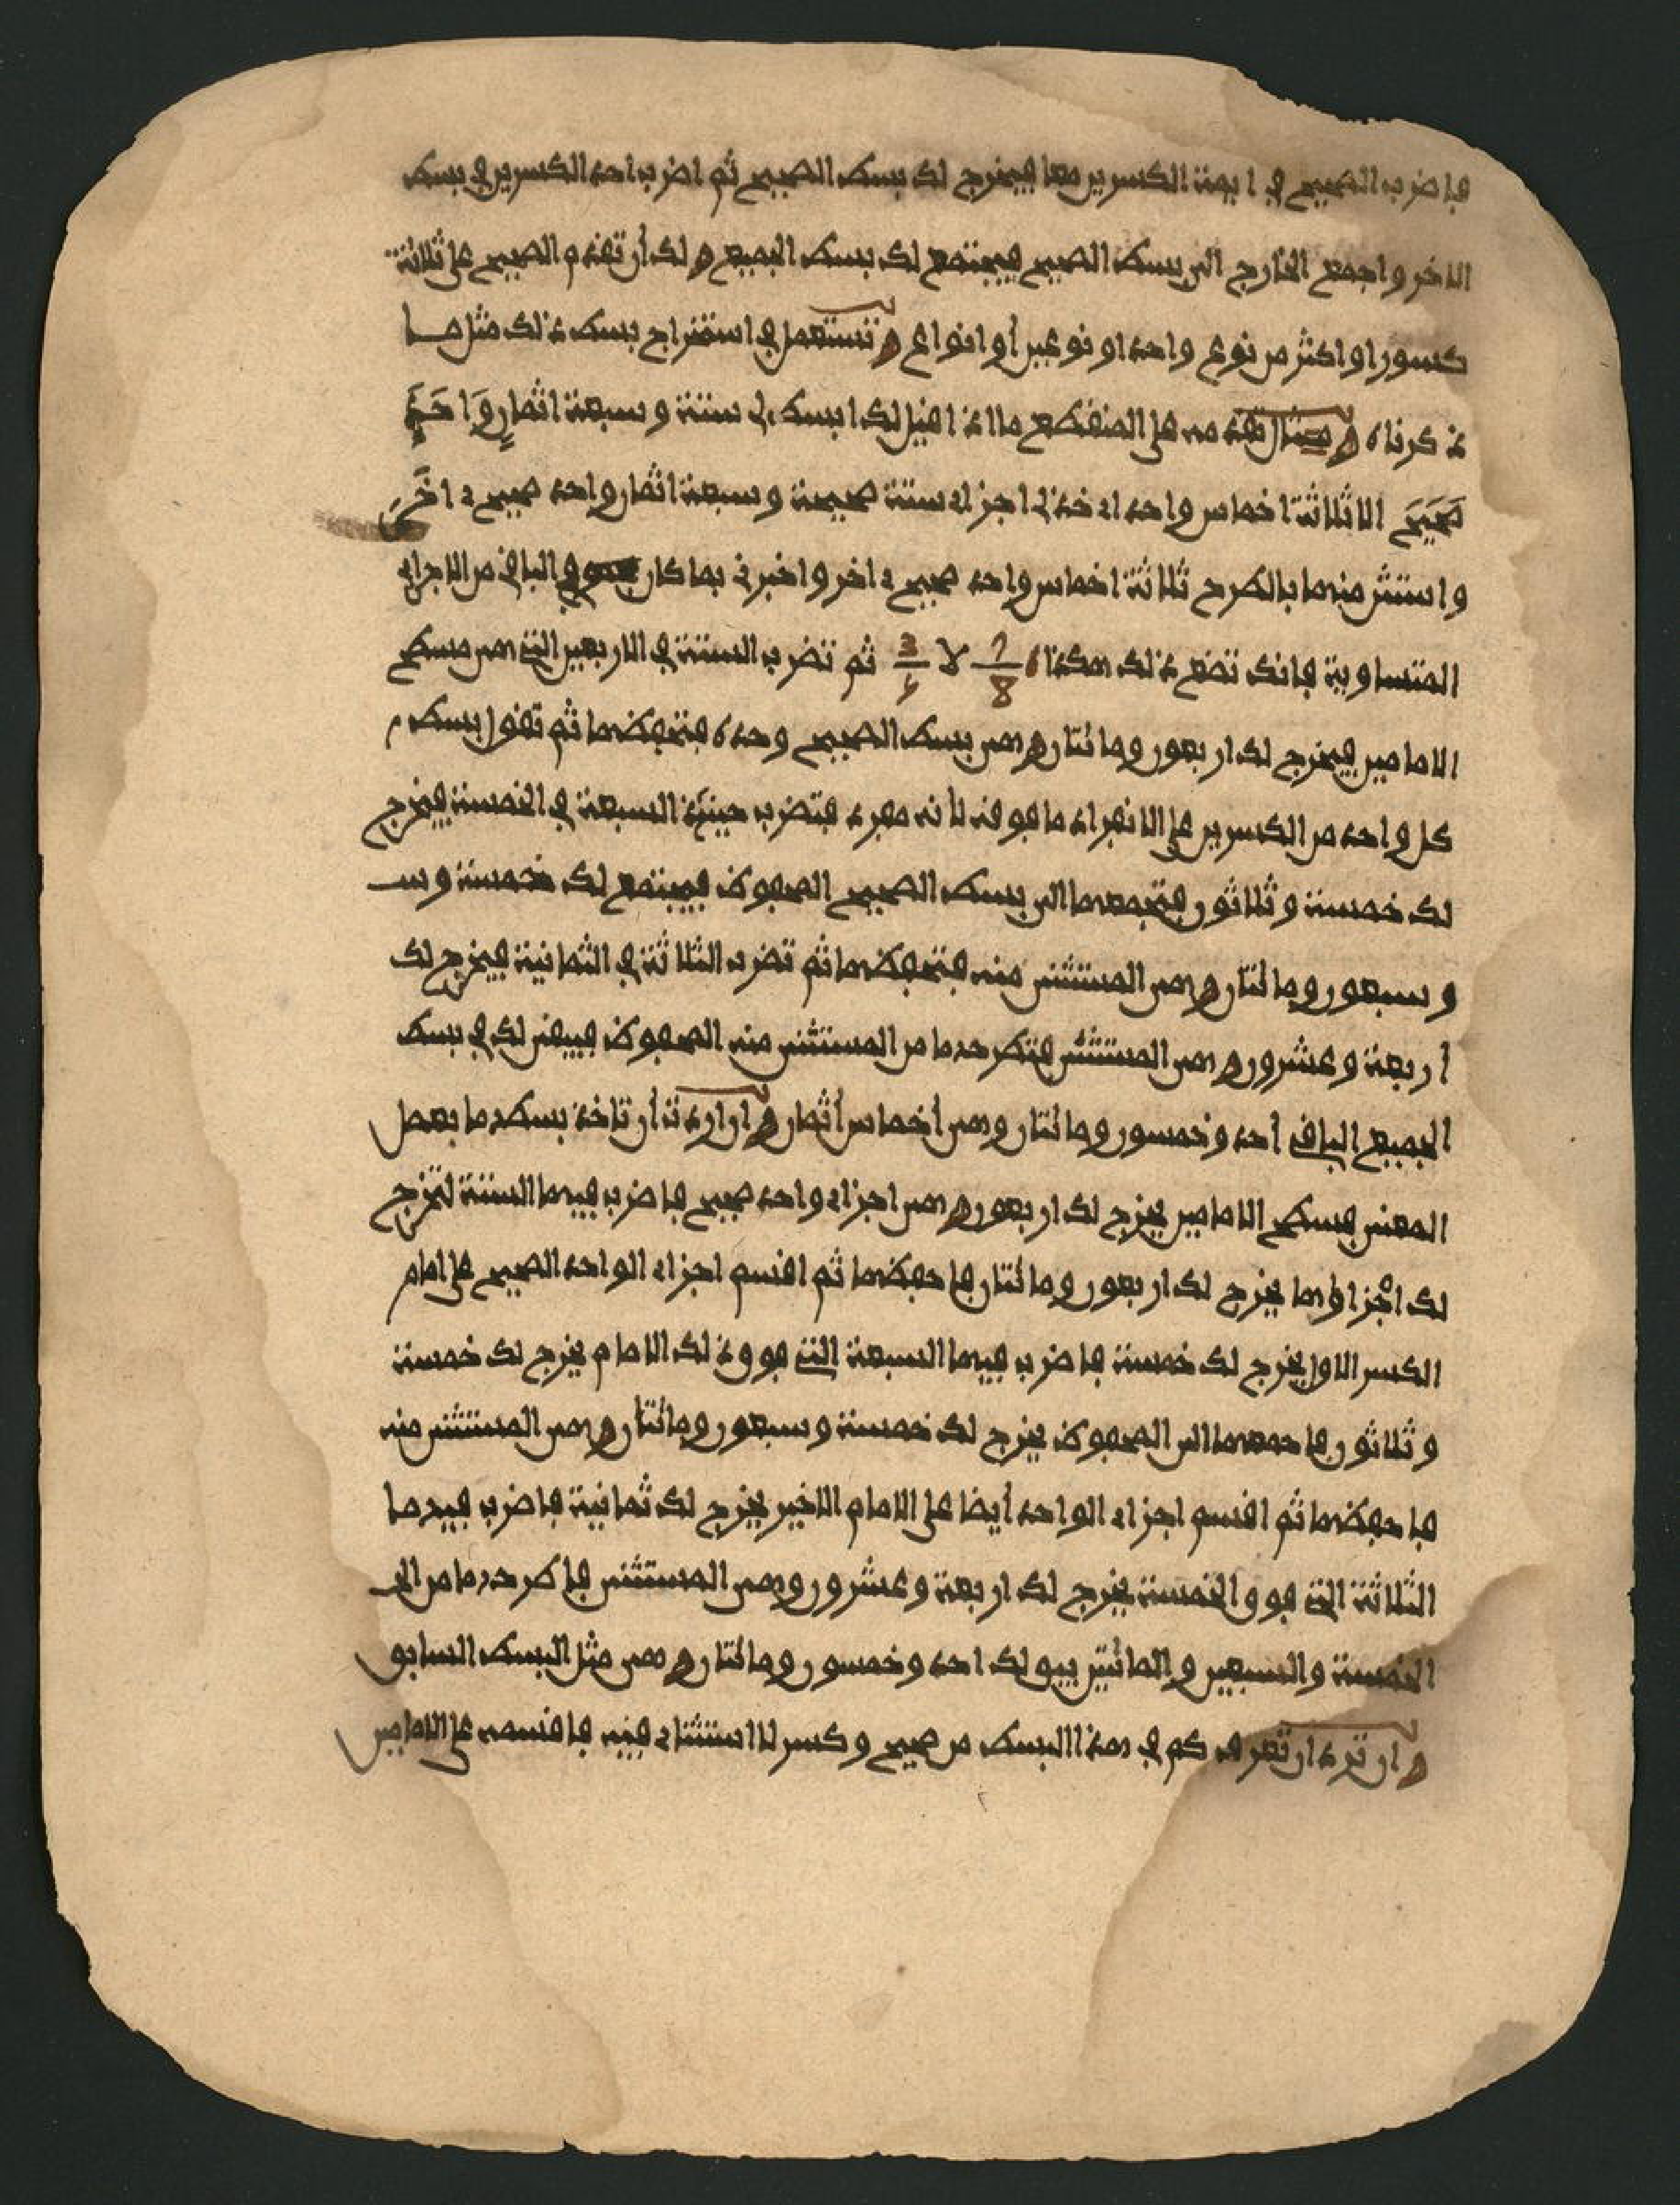 فاضرب الصحيح في ايمة الكسرين معا فيخرج لك بسط الصحيح ثم اضرب احد الكسرين في بسط
الاخر واجمع الخارج الى بسط الصحيح فيجتمع لك بسط الجميع ولك أن تقدم الصحيح على ثلاثة
كسور او اكثر من نوع واحد او نوعين أو انواع وتستعمل في استخراج بسط ذلك مثل مــا
ذكرناه ومثال تقدمه على المنقطع ما اذا قيل لك ابسط لى ستة وسبعة اثمان وَاحدٍ
صَحيحٍ الا ثلاثة اخماس واحد اى خذ لى اجزاء ستة صحيحة وسبعة اثمان واحد صحيح ء اخَر
واستثن منها بالطرح ثلاثة اخماس واحد صحيح ء اخر واخبرنى بما كان في الباقى من الاجزاء
المتساوية فانك تضع ذلك هكذا 6 7/8 لا 3/5 ثم تضرب الستة في الاربعين التى هى مسطح
الامامين فيخرج لك اربعون ومائتان وهى بسط الصحيح وحده فتحفظها ثم تقول بسط
كل واحد من الكسرين على الانفراد ما فوقه لانه مفرد فتضرب حينئذ السبعة في الخمسة فيخرج
لك خمسة وثلاثون فتجمعها الى بسط الصحيح المحفوظ فيجتمع لك خمسة وسـ
وسبعون ومائتان وهى المستثنى منه فتحفظها ثم تضرب الثلاثة في الثمانية فيخرج لك
أربعة وعشرون وهى المستثنى فتطرحها من المستثنى منه المحفوظ فيبقى لك في بسط
الجميع الباقى أحد وخمسون ومائتان وهى أخماس أثمان وان اردت أن تاخذ بسطها بعمل
المعنى فسطح الامامين يخرج لك اربعون وهى اجزاء واحد صحيح فاضرب فيها الستة تخرج
لك اجزاؤها يخرج لك اربعون ومائتان فاحفظها ثم اقسم اجزاء الواحد الصحيح على امام
الكسر الاول يخرج لك خمسة فاضرب فيها السبعة التى فوق ذلك الامام يخرج لك خمسة
وثلاثون فاجمعها الى المحفوظ يخرج لك خمسة وسبعون ومائتان وهى المستثنى منه
فاحفظها ثم اقسم اجزاء الواحد أيضا على الامام الاخير يخرج لك ثمانية فاضرب فيها
الثلاثة التى فوق الخمسة يخرج لك اربعة وعشرون وهى المستثنى فاطرحها من الخـ
الخمسة والسبعين والمائتين يبق لك احد وخمسون ومائتان وهى مثل البسط السابق
وان ترد ان تعرف كم في هذا البسط من صحيح وكسر لا استثناء فيه فاقسمه على الامامين